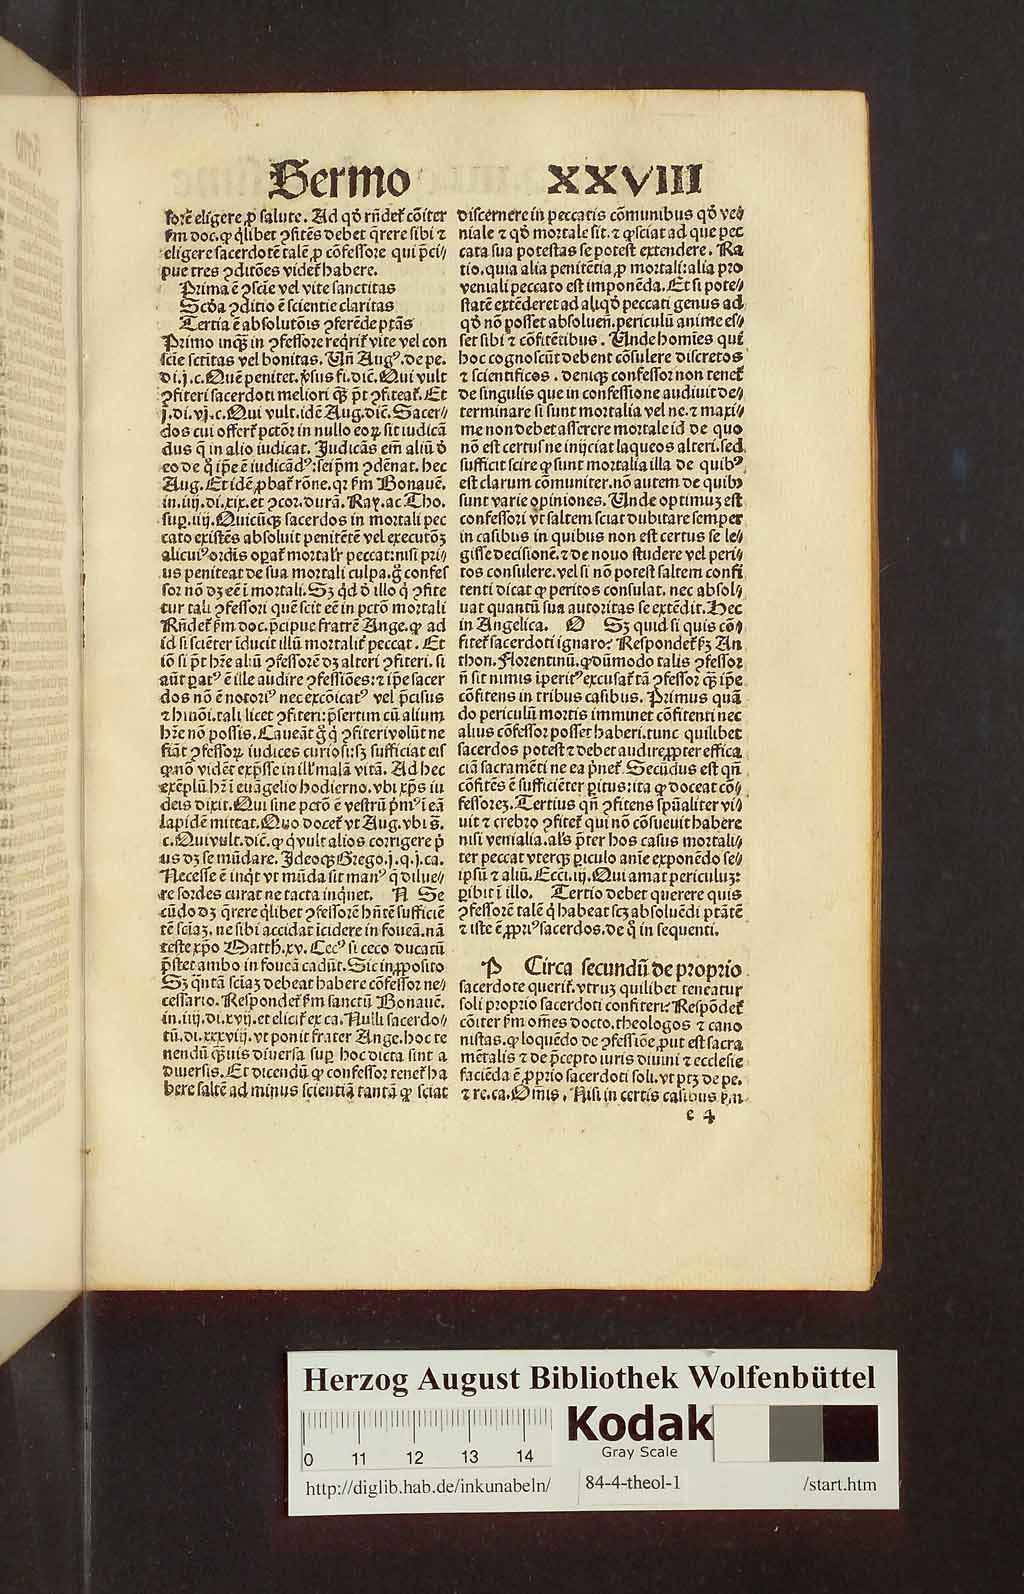 Sermo XXVIII
sorē eligere ꝓ salute. Ad qđ rñdet᷑ cōiter
ẜm doc. ꝙ qͥlibet ꝯfitēs debet qͥrere sibi ⁊
eligere sacerdotē talē ꝓ cōfessore qui pͥnci⸗
pue tres ꝯditōes videt᷑ habere.
Prima ē ꝯscīe vel vite sanctitas
Scđa ꝯditio ē scientie claritas
Tertia ē absolutōis ꝯferēde ptās
Primo inqͣꝫ in ꝯfessore reqͥrit᷑ vite vel con
scīe sctītas vel bonitas. Uñ Augꝰ. de pe.
di.j.c. Quē penitet. ꝟsus fi. dic̄. Qui vult
ꝯfiteri sacerdoti meliori qͣꝫ pt̄ ꝯfiteat᷑. Et
j.di.vj.c. Qui vult. idē Aug. dic̄. Sacer⸗
dos cui offert᷑ pctōr in nullo eoꝝ sit iudicā
dus q̄ in alio iudicat. Judicās em̄ aliū đ
eo de qͦ ip̄e ē iudicādꝰ: seip̄m ꝯdēnat. hec
Aug. Et idē ꝓbat᷑ rōne. qꝛ ẜm Bonauē.
in.iiij.di.xix. et ꝯcor. durā. Ray. ac Tho.
suꝑ.iiij. Quicūqꝫ sacerdos in mortali pec
cato existēs absoluit penitētē vel executōꝫ
alicuiꝰ ordīs oꝑat᷑ mortalr̄ peccat: nisi pri⸗
us peniteat de sua mortali culpa. g̊ confes
sor nō dꝫ eē ī mortali. Sꝫ qͥd đ illo qͥ ꝯfite
tur tali ꝯfessori quē scit eē in pctō mortali
Rñdet᷑ ẜm doc. p̄cipue fratrē Ange. ꝙ ad
id si sciēter īducit illū mortalit᷑ peccat. Et
iō si pt̄ hr̄e aliū ꝯfessorē dꝫ alteri ꝯfiteri. si
aūt ꝑatꝰ ē ille audire ꝯfessiōes: ⁊ ip̄e sacer
dos nō ē notoriꝰ nec excōicatꝰ vel p̄cisus
⁊ hmōi. tali licet ꝯfiteri: p̄sertim cū alium
hr̄e nō possis. Caueāt g̊ qͥ ꝯfiteri volūt ne
fiāt ꝯfessoꝝ iudices curiosi: sꝫ sufficiat eis
ꝙ nō vidēt exp̄sse in illꝰ malā vitā. Ad hec
exēplū hr̄ ī euāgelio hodierno. vbi xp̄s iu
deis dixit. Qui sine pctō ē vestrū pͥmꝰ ī eā
lapidē mittat. Quo docet᷑ vt Aug. vbi s̄.
c. Qui vult. dic̄. ꝙ qͥ vult alios corrigere pͥ
us dꝫ se mūdare. Ideoqꝫ Grego.j.q.j.ca.
Necesse ē inqͥt vt mūda sit manꝰ q̄ diluē⸗
re sordes curat ne tacta inqͥnet. N Se
cūdo dꝫ qͥrere qͥlibet ꝯfessorē hñtē sufficiē
tē sciaꝫ. ne sibi accidat īcidere in foueā. nā
teste xp̄o Matth.xv. Cecꝰ si ceco ducatū
p̄stet ambo in foueā cadūt. Sic in ꝓposito
Sꝫ qͣntā sciaꝫ debeat habere cōfessor ne⸗
cessario. Respondet᷑ ẜm sanctū Bonauē.
in.iiij.di.xvij. et elicit᷑ ex ca. Nulli sacerdo⸗
tū. di.xxxviij. vt ponit frater Ange. hoc te
nendū qͣꝫuis diuersa suꝑ hoc dicta sint a
diuersis. Et dicendū ꝙ confessor tenet᷑ ha
bere saltē ad minus scientiā tantā ꝙ sciat
discernere in peccatis cōmunibus qđ ve⸗
niale ⁊ qđ mortale sit. ⁊ ꝙ sciat ad que pec
cata sua potestas se potest extendere. Ra
tio. quia alia penitētia ꝓ mortali: alia pro
veniali peccato est imponēda. Et si pote⸗
statē extēderet ad aliqđ peccati genus ad
qđ nō posset absoluen. periculū anime es⸗
set sibi ⁊ cōfitētibus. Unde homīes qui
hoc cognoscūt debent cōsulere discretos
⁊ scientificos. deniqꝫ confessor non tenet᷑
de singulis que in confessione audiuit de⸗
terminare si sunt mortalia vel ne. ⁊ maxi⸗
me non debet asserere mortale id de quo
nō est certus ne inijciat laqueos alteri. sed
sufficit scire ꝙ sunt mortalia illa de quibꝰ
est clarum cōmuniter. nō autem de quibꝰ
sunt varie opiniones. Unde optimuꝫ est
confessori vt saltem sciat dubitare semper
in casibus in quibus non est certus se le⸗
gisse decisionē. ⁊ de nouo studere vel peri⸗
tos consulere. vel si nō potest saltem confi
tenti dicat ꝙ peritos consulat. nec absol⸗
uat quantū sua autoritas se extēdit. Hec
in Angelica. O Sꝫ quid si quis cōn
fitet᷑ sacerdoti ignaro? Respondet᷑ ẜꝫ An
thon. Florentinū. ꝙ dūmodo talis ꝯfessor
ñ sit nimis īperitꝰ excusat᷑ tā ꝯfessor qͣꝫ ip̄e
cōfitens in tribus casibus. Primus quā
do periculū mortis imminet cōfitenti nec
alius cōfessor posset haberi. tunc quilibet
sacerdos potest ⁊ debet audire ꝓpter effica
ciā sacramēti ne ea pͥuet᷑. Secūdus est qñ
cōfitēs ē sufficiēter ꝑitus: ita ꝙ doceat cō⸗
fessoreꝫ. Tertius qñ ꝯfitens spūaliter vi⸗
uit ⁊ crebro ꝯfitet᷑ qui nō cōsueuit habere
nisi venialia. als̄ p̄ter hos casus mortali⸗
ter peccat vterqꝫ ꝑiculo anīe exponēdo se⸗
ip̄sū ⁊ aliū. Ecci.iij. Qui amat periculuꝫ:
ꝑibit ī illo. Tertio debet querere quis
ꝯfessorē talē qͥ habeat scꝫ absoluēdi ptātē
⁊ iste ē ꝓpriꝰ sacerdos. de qͦ in sequenti.
P Circa secundū de proprio
sacerdote querit᷑. vtruꝫ quilibet teneatur
soli proprio sacerdoti confiteri? Respōdet᷑
cōiter ẜm om̄es docto. theologos ⁊ cano
nistas. ꝙ loquēdo de ꝯfessiōe ꝓut est sacra
mētalis ⁊ de p̄cepto iuris diuini ⁊ ecclesie
faciēda ē ꝓprio sacerdoti soli. vt ptꝫ de pe.
⁊ re. ca. Om̄is. Nisi in certis casibus ẜm
e 4
Herzog August Bibliothek Wolfenbüttel
0 11 12 13 14
Kodak
Gray Scale
http://diglib.hab.de/inkunabeln/ 84-4-theol-1 /start.htm